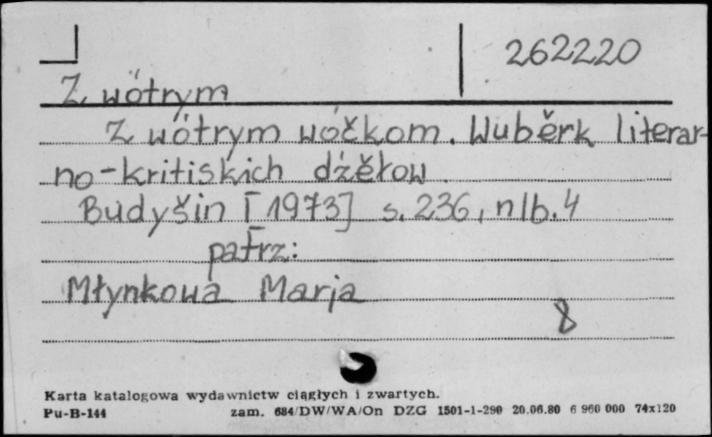 262220
Z wótrym
Z wótrym wóčkom. Wuběrk literar-
no-kritiskich dźěłow.
Budyšin [1973] s. 236, nlb. 4
patrz:
Młynkowa Marja
8
Karta katalogowa wydawnictw ciągłych i zwartych.
Pu-B-144 zam. 684/DW/WA/On DZG 1501-1-290 20.06.80 6 960 000 74x120